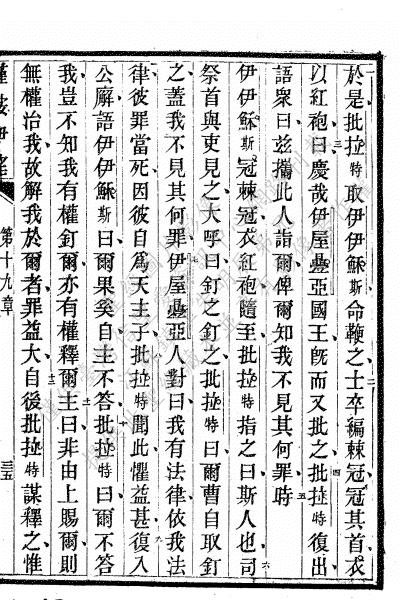 於是批拉特取伊伊穌斯命鞭之士卒編棘冠冠其首衣
以紅袍曰慶哉伊屋疊亞國王旣而又批之批拉特復出
語衆曰兹攜此人詣爾俾爾知我不見其何罪時
伊伊穌斯冠棘冠衣紅袍隨至批拉特指之曰斯人也司
祭首與吏見之大呼曰釘之釘之批拉特曰爾曹自取釘
之蓋我不見其何罪伊屋疊亞人對曰我有法律依我法
律彼罪當死因彼自爲天主子批拉特聞此懼益甚復入
公廨語伊伊穌斯曰爾果奚自主不答批拉特曰爾不答
我豈不知我有權釘爾亦有權釋爾主曰非由上賜爾則
無權治我故解我於爾者罪益大自後批拉特謀釋之惟
第十九章 三五